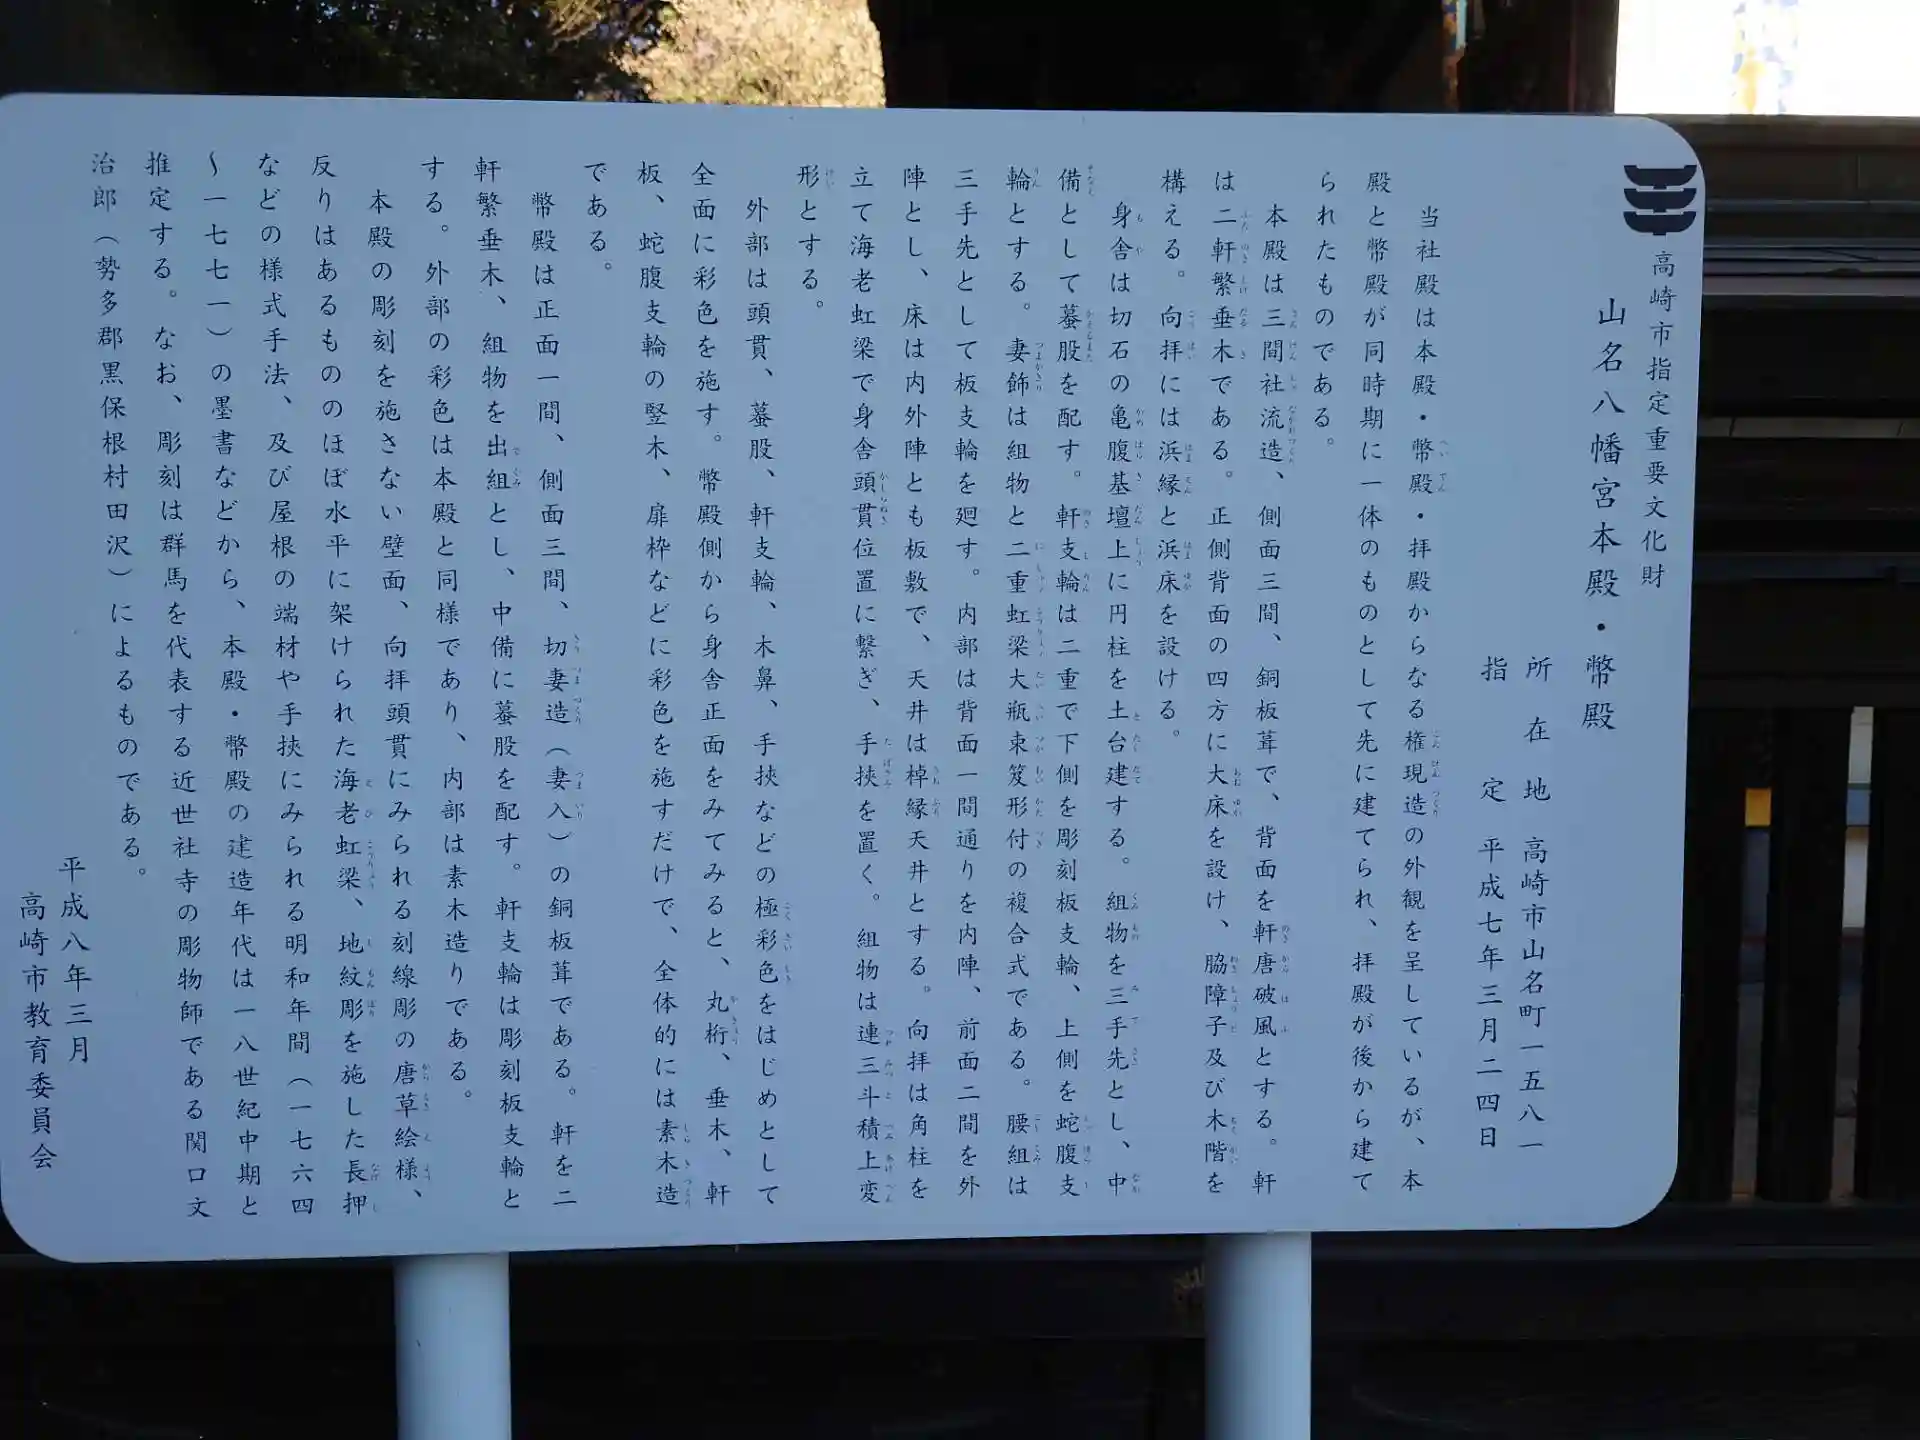 高崎市指定重要文化財
山名八幡宮本殿・幣殿
所在地 高崎市山名町一五八一
指定 平成七年三月二四日
当社殿は本殿・幣殿・拝殿からなる権現造の外観を呈しているが、本
殿と幣殿が同時期に一体のものとして先に建てられ、拝殿が後から建て
られたものである。
本殿は三間社流造、側面三間、銅板葺で、背面を軒唐破風とする。軒
は二軒繁垂木である。正側背面の四方に大床を設け、脇障子及び木階を
構える。向拝には浜縁と浜床を設ける。
身舎は切石の亀腹基壇上に円柱を土台建する。組物を三手先とし、中
備として蟇股を配す。軒支輪は二重で下側を彫刻板支輪、上側を蛇腹支
輪とする。妻飾は組物と二重虹梁大瓶束笈形付の複合式である。腰組は
三手先として板支輪を廻す。内部は背面一間通りを内陣、前面二間を外
陣とし、床は内外陣とも板敷で、天井は棹縁天井とする。向拝は角柱を
立て海老虹梁で身舎頭貫位置に繋ぎ、手挟を置く。組物は連三斗積上変
形とする。
外部は頭貫、蟇股、軒支輪、木鼻、手挟などの極彩色をはじめとして
全面に彩色を施す。幣殿側から身舎正面をみてみると、丸桁、垂木、軒
板、蛇腹支輪の竪木、扉枠などに彩色を施すだけで、全体的には素木造
である。
幣殿は正面一間、側面三間、切妻造（妻入）の銅板葺である。軒を二
軒繁垂木、組物を出組とし、中備に蟇股を配す。軒支輪は彫刻板支輪と
する。外部の彩色は本殿と同様であり、内部は素木造りである。
本殿の彫刻を施さない壁面、向拝頭貫にみられる刻線彫の唐草絵様、
反りはあるもののほぼ水平に架けられた海老虹梁、地紋彫を施した長押
などの様式手法、及び屋根の端材や手挟にみられる明和年間（一七六四
〜一七七一）の墨書などから、本殿・幣殿の建造年代は一八世紀中期と
推定する。なお、彫刻は群馬を代表する近世社寺の彫物師である関口文
治郎（勢多郡黒保根村田沢）によるものである。
平成八年三月
高崎市教育委員会